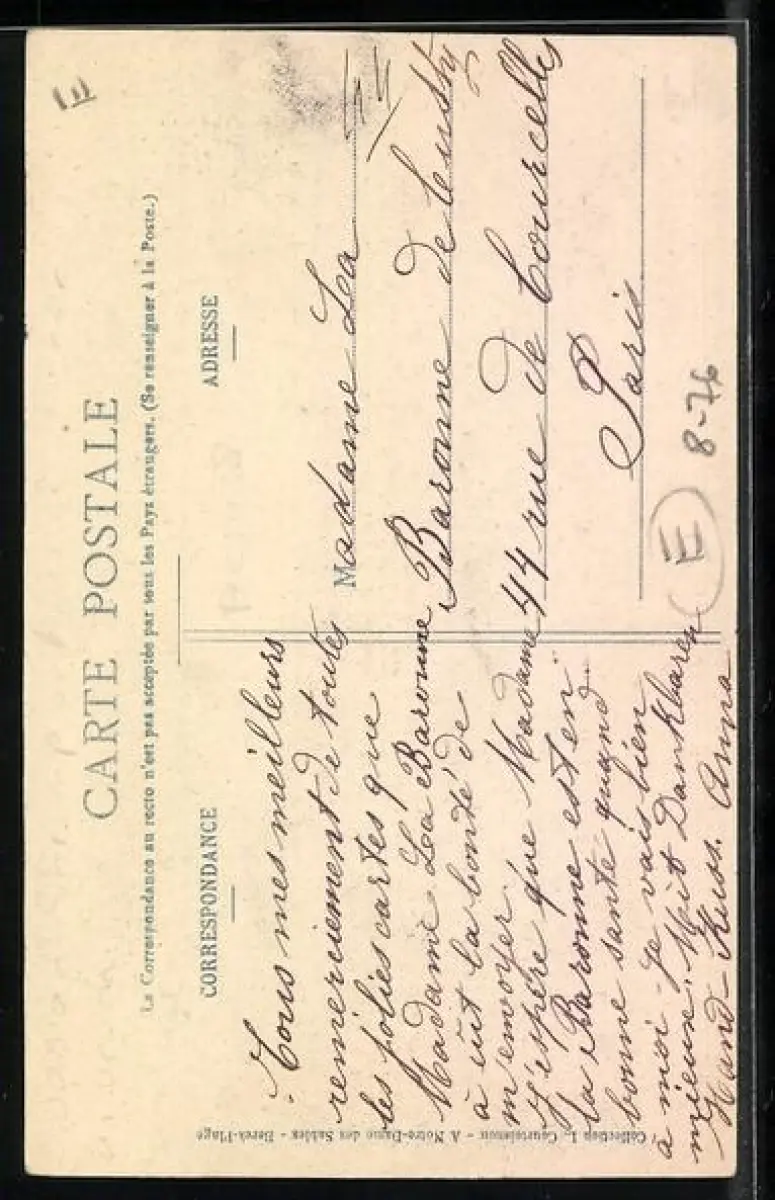 E
CARTE POSTALE
La Correspondance au recto n'est pas acceptée par tous les Pays étrangers. (Se renseigner à la Poste.)
CORRESPONDANCE
Tous mes meilleurs
remerciement de toutes
les jolies cartes que
Madame La Baronne
à eût la bonté de
m'envoyer
J'espère que Madame
la Baronne est en
bonne sante quand
a moi je vais bien
mieux. Mit Dankbaren
Hand-Kuss. Anna
ADRESSE
Madame La
Baronne de
44 rue de Courcelles
Paris
E
8-76
Collection L. - A Notre-Dame des Sables - Berck-Plage